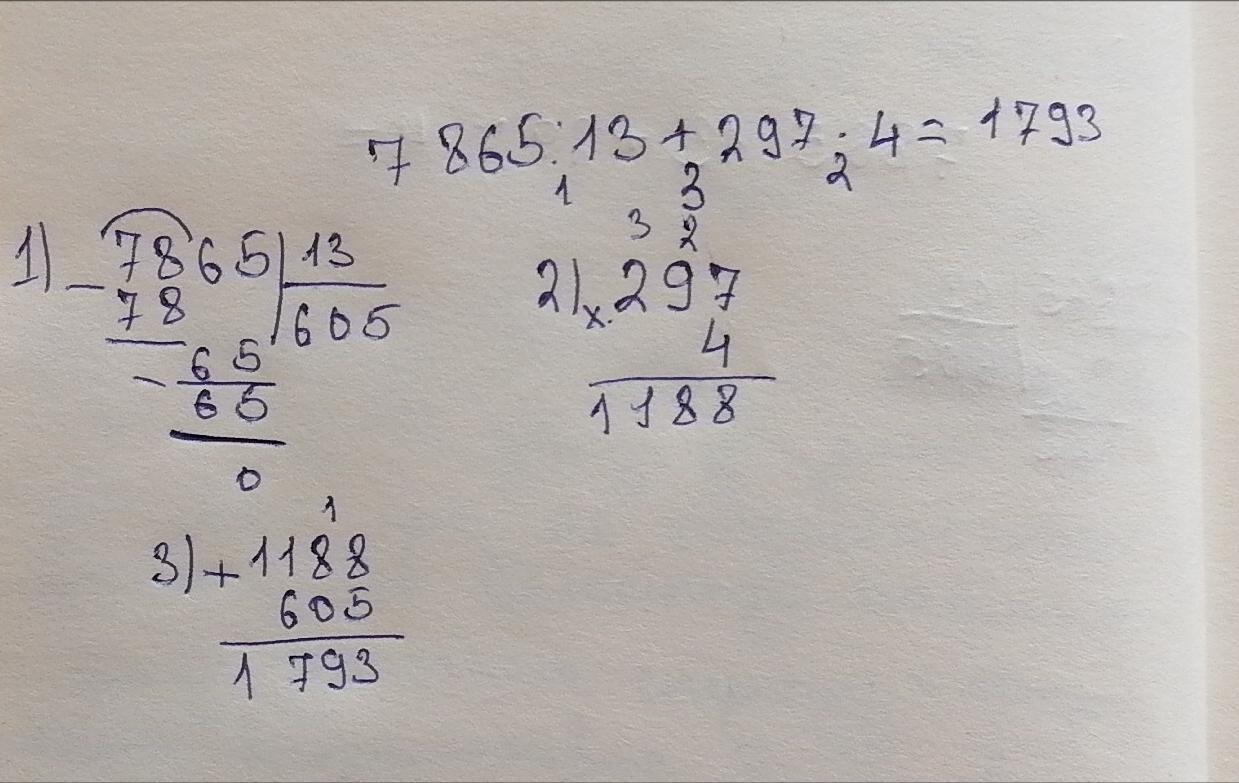 7 865:13+297·4=1793
1 3 2
1) –7865|13
78 605
–65
65
0
3 2
2) x 297
4
1188
1
3) +1188
605
1 793